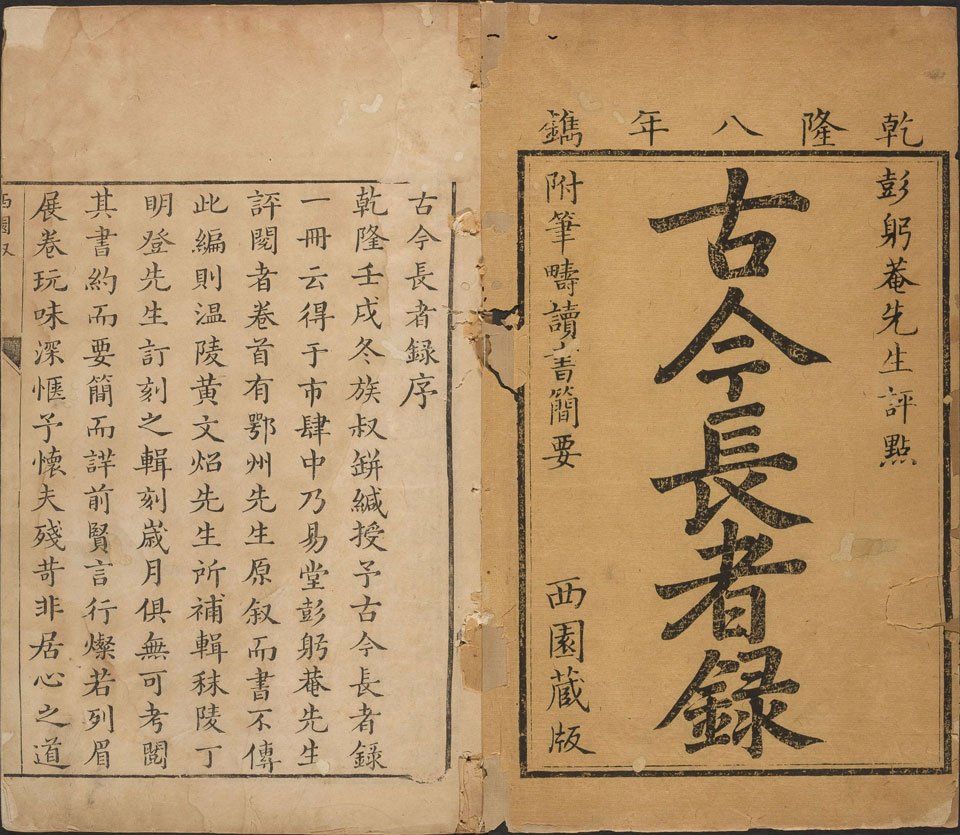 乾隆八年鐫
彭躬菴先生評點
古今長者録
附筆疇讀書簡要
西園蔵版
古今長者録序
乾隆壬戌冬族叔鉼緘授予古今長者録
一冊云得于市肆中乃易堂彭躬菴先生
評閱者卷首有鄂州先生原叙而書不傳
此編則溫陵黄文炤先生所補輯秣陵丁
明登先生訂刻之輯刻嵗月俱無可考閱
其書約而要簡而詳前賢言行燦若列眉
展卷玩味深愜予懷夫殘苛非居心之道